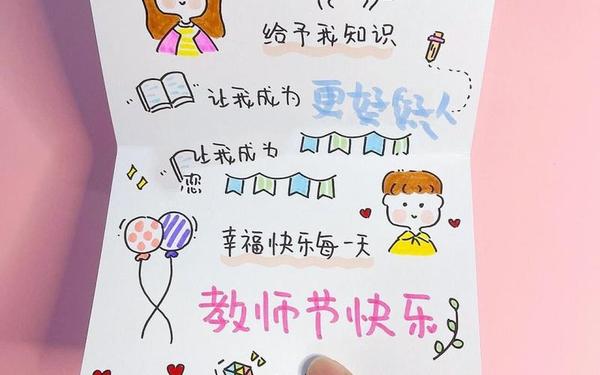 给予我知识
让我成为 更好好人
让我成为
恋
幸福快乐每一天
教师节快乐